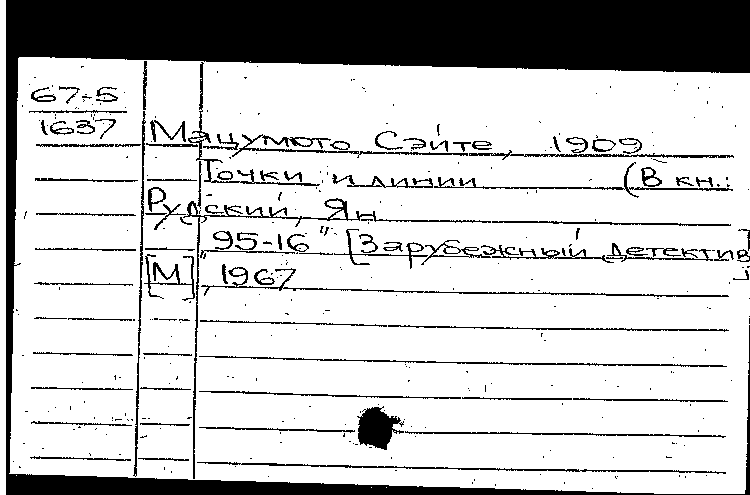 67-5
1637
Мацумото, Сэйте, 1909
Точки и линии (В кн.:
Рудский, Ян
"95-16" [Зарубежный детектив]
[М], 1967